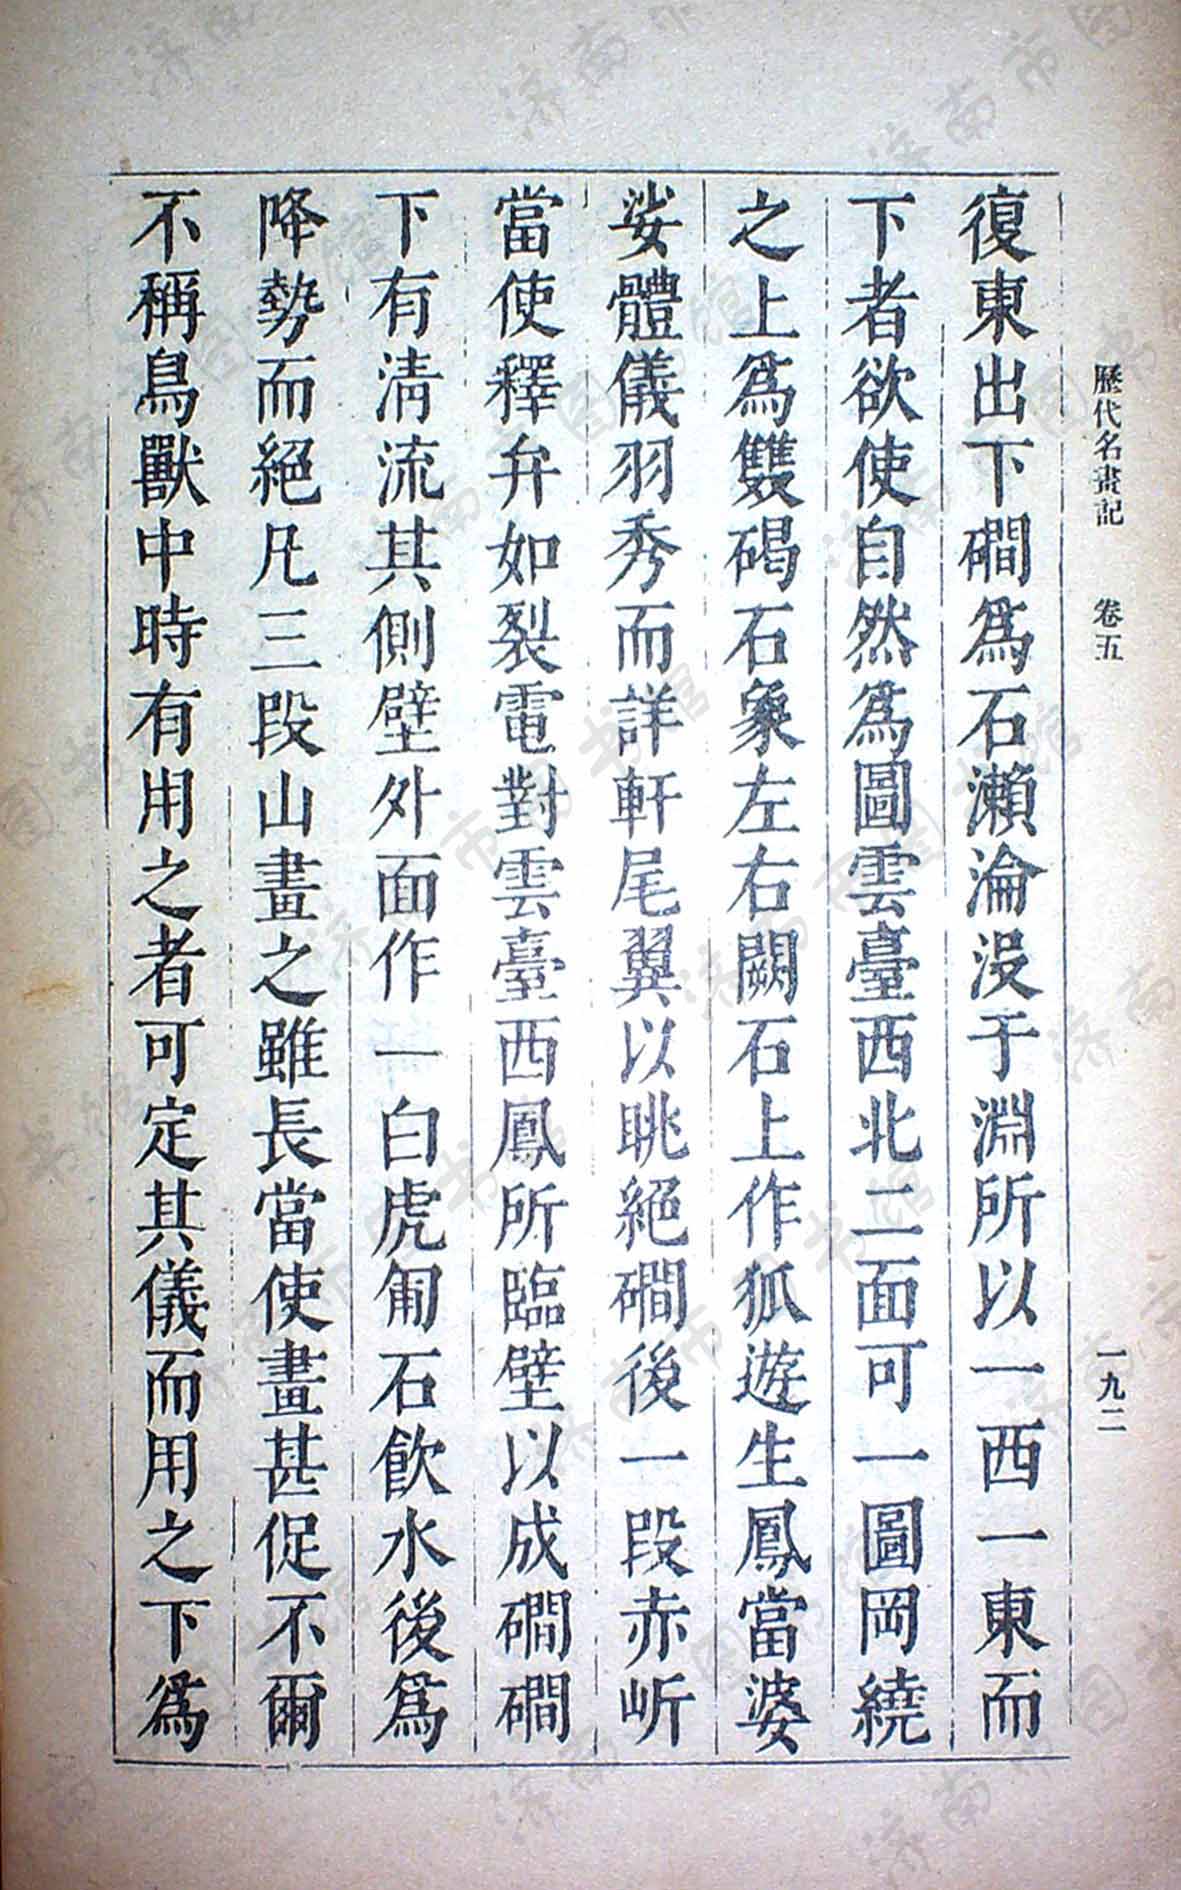 復東出下磵爲石瀨淪沒于淵所以一西一東而
下者欲使自然爲圖雲臺西北二面可一圖岡繞
之上爲雙碣石象左右闕石上作狐遊生鳳當婆
娑體儀羽秀而詳軒尾翼以眺絕磵後一段赤岓
當使釋弁如裂電對雲臺西鳳所臨壁以成磵磵
下有清流其側壁外面作一白虎匍石飲水後爲
降勢而絕凡三段山畫之雖長當使畫甚促不爾
不稱鳥獸中時有用之者可定其儀而用之下爲
歷代名畫記 卷五 一九二
济南市图书馆